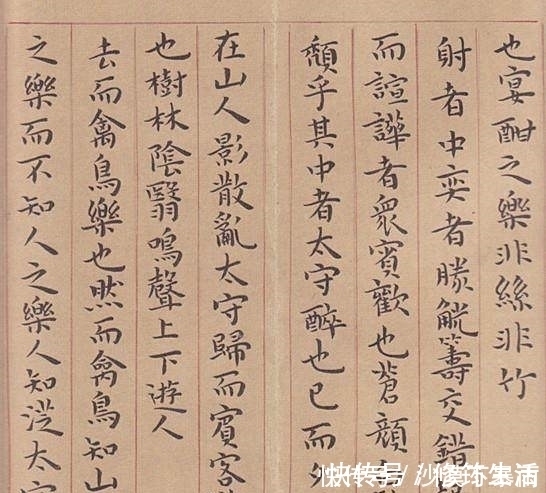 也宴酣之樂非絲非竹
射者中奕者勝觥籌交錯
而諠譁者衆賓歡也蒼顔
頹乎其中者太守醉也已而夕
在山人影散亂太守歸而賓客
也樹林陰翳鳴聲上下遊人
去而禽鳥樂也然而禽鳥知山
之樂而不知人之樂人知從太守
快传号/